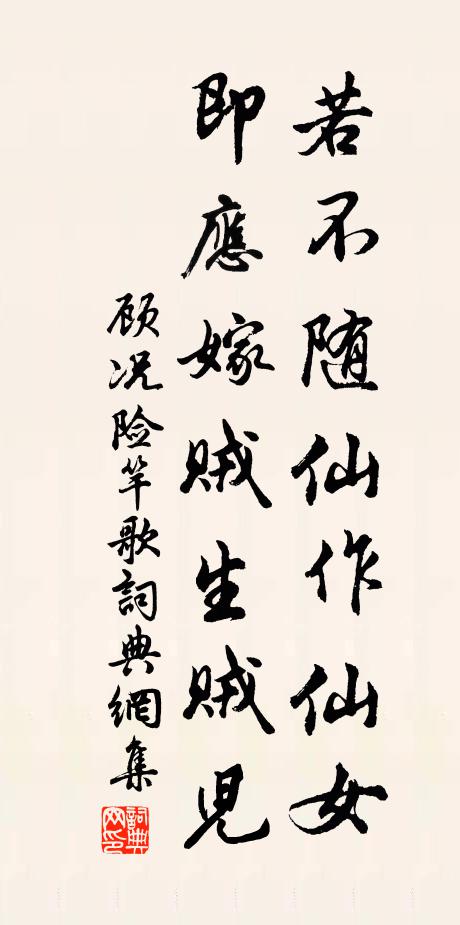 若不随仙作仙女
即應嫁贼生贼児
顾况险竿歌詞典網集
詞典网印